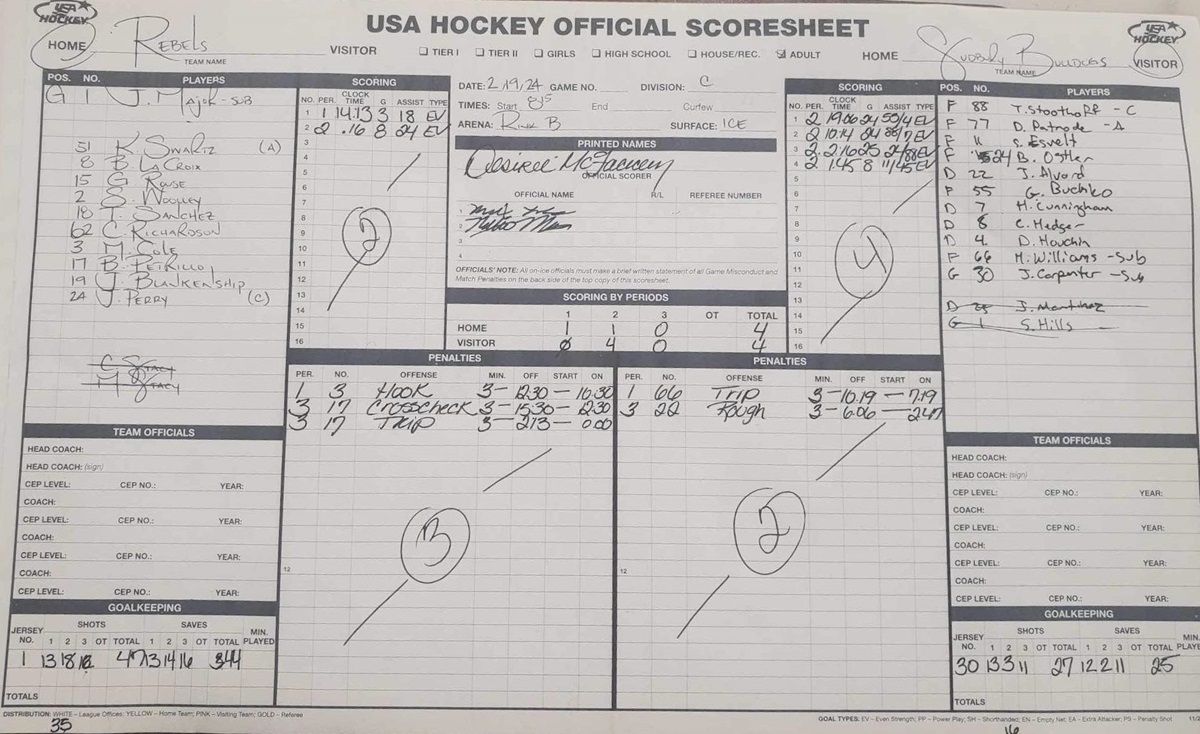 USA HOCKEY
USA HOCKEY OFFICIAL SCORESHEET
USA HOCKEY
HOME Rebels VISITOR
TEAM NAME
TIER I TIER II GIRLS HIGH SCHOOL HOUSE/REC. ADULT
HOME Bulldogs VISITOR
TEAM NAME
POS. NO. PLAYERS
G 1 J. Major - SUB
51 K. Swartz (A)
8 B. LaCroix
15 G. Rouse
2 S. Woolley
18 T. Sanchez
62 C. Richardson
3 M. Cole
17 B. Petrillo
19 J. Blankenship
24 J. Perry (C)
C Stacy
M Stacy
SCORING
NO. PER. CLOCK TIME G ASSIST TYPE
1 1 14.13 3 18 EV
2 2 .16 8 24 EV
3
4
5
6
7
8
9
10
11
12
13
14
15
16
2
DATE: 2 19/24 GAME NO. DIVISION: C
TIMES: Start 845 End Curfew
ARENA: Rink B SURFACE: ICE
PRINTED NAMES
OFFICIAL SCORER
OFFICIAL NAME R/L REFEREE NUMBER
1
2
3
4
OFFICIALS' NOTE: All on-ice officials must make a brief written statement of all Game Misconduct and
Match Penalties on the back side of the top copy of this scoresheet.
SCORING BY PERIODS
1 2 3 OT TOTAL
HOME 1 1 0 4
VISITOR 0 4 0 4
SCORING
NO. PER. CLOCK TIME G ASSIST TYPE
1 2 19.06 24 55/4 EV
2 2 10.14 24 88/7 EV
3 2 2.16 25 24/88 EV
4 2 1.45 8 11/45 EV
5
6
7
8
9
10
11
12
13
14
15
16
4
POS. NO. PLAYERS
F 88 T. Stoothoff - C
F 77 D. Patrode - A
F 11 S. Esvelt
F 24 B. Ostler
D 22 J. Alvord
F 55 G. Buchko
D 7 M. Cunningham
D 8 C. Hedger
D 4 D. Houchin
F 66 M. Williams - Sub
G 30 J. Carpenter - Sub
D 25 J. Martinez
G 1 S. Hills
PENALTIES
PER. NO. OFFENSE MIN. OFF START ON
1 3 Hook 3 - 12:30 - 10:30
3 17 Crosscheck 3 - 15:30 - 12:30
3 17 Trip 3 - 2:13 - 0:00
12
3
PENALTIES
PER. NO. OFFENSE MIN. OFF START ON
1 66 Trip 3 - 10.19 - 7.19
3 22 Rough 3 - 6:06 - 2:47
12
2
TEAM OFFICIALS
HEAD COACH:
HEAD COACH: (sign)
CEP LEVEL: CEP NO.: YEAR:
COACH:
CEP LEVEL: CEP NO.: YEAR:
COACH:
CEP LEVEL: CEP NO.: YEAR:
COACH:
CEP LEVEL: CEP NO.: YEAR:
GOALKEEPING
JERSEY NO. SHOTS 1 2 3 OT TOTAL SAVES 1 2 3 OT TOTAL MIN. PLAYED
1 13 18 16 47 13 14 16 44
TOTALS
TEAM OFFICIALS
HEAD COACH:
HEAD COACH: (sign)
CEP LEVEL: CEP NO.: YEAR:
COACH:
CEP LEVEL: CEP NO.: YEAR:
COACH:
CEP LEVEL: CEP NO.: YEAR:
COACH:
CEP LEVEL: CEP NO.: YEAR:
GOALKEEPING
JERSEY NO. SHOTS 1 2 3 OT TOTAL SAVES 1 2 3 OT TOTAL MIN. PLAYE
30 13 3 11 27 12 2 11 25
TOTALS
DISTRIBUTION: WHITE – League Offices; YELLOW – Home Team; PINK – Visiting Team; GOLD – Referee
GOAL TYPES: EV – Even Strength; PP – Power Play; SH – Shorthanded; EN – Empty Net; EA – Extra Attacker; PS – Penalty Shot
35
16